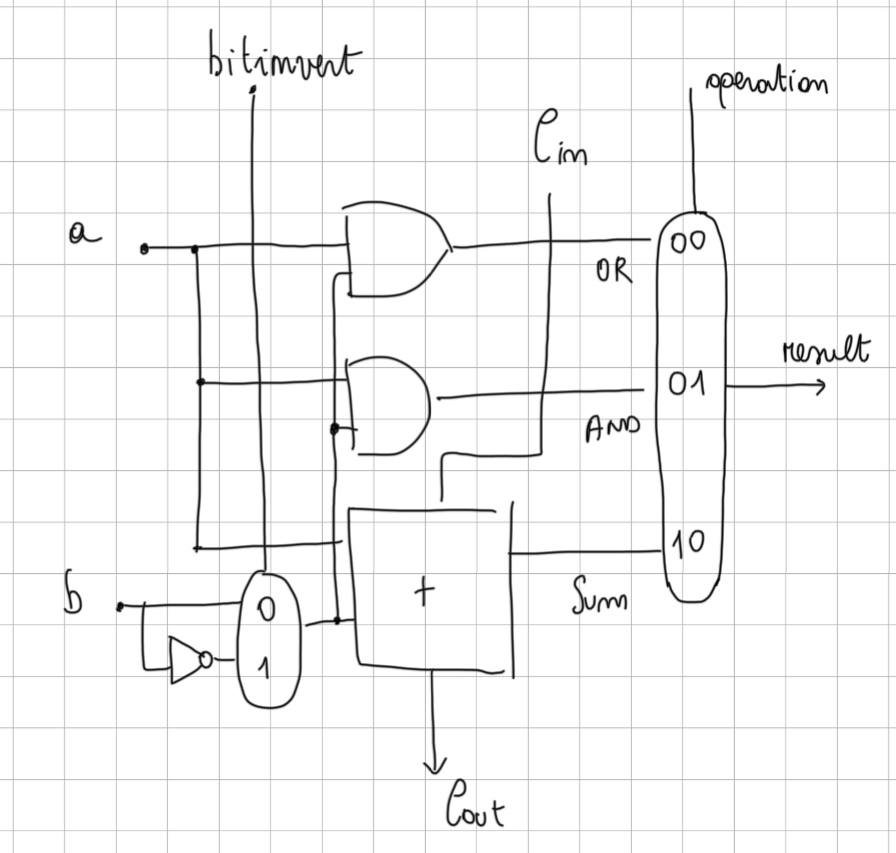 bitinvert
operation
Cin
a
00
OR
result
01
AND
10
b
0
+
Sum
1
Cout